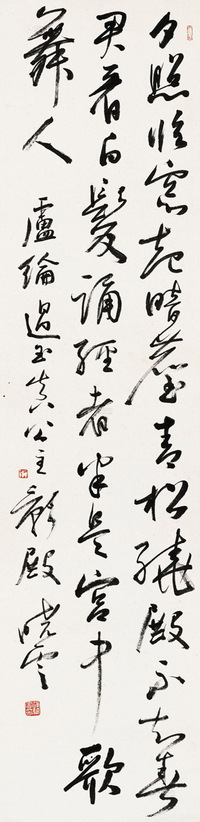 夕照临窗起暗尘青松绕殿不知春
君看白发诵经者半是宫中歌
舞人
卢纶过玉真公主影殿 晓云